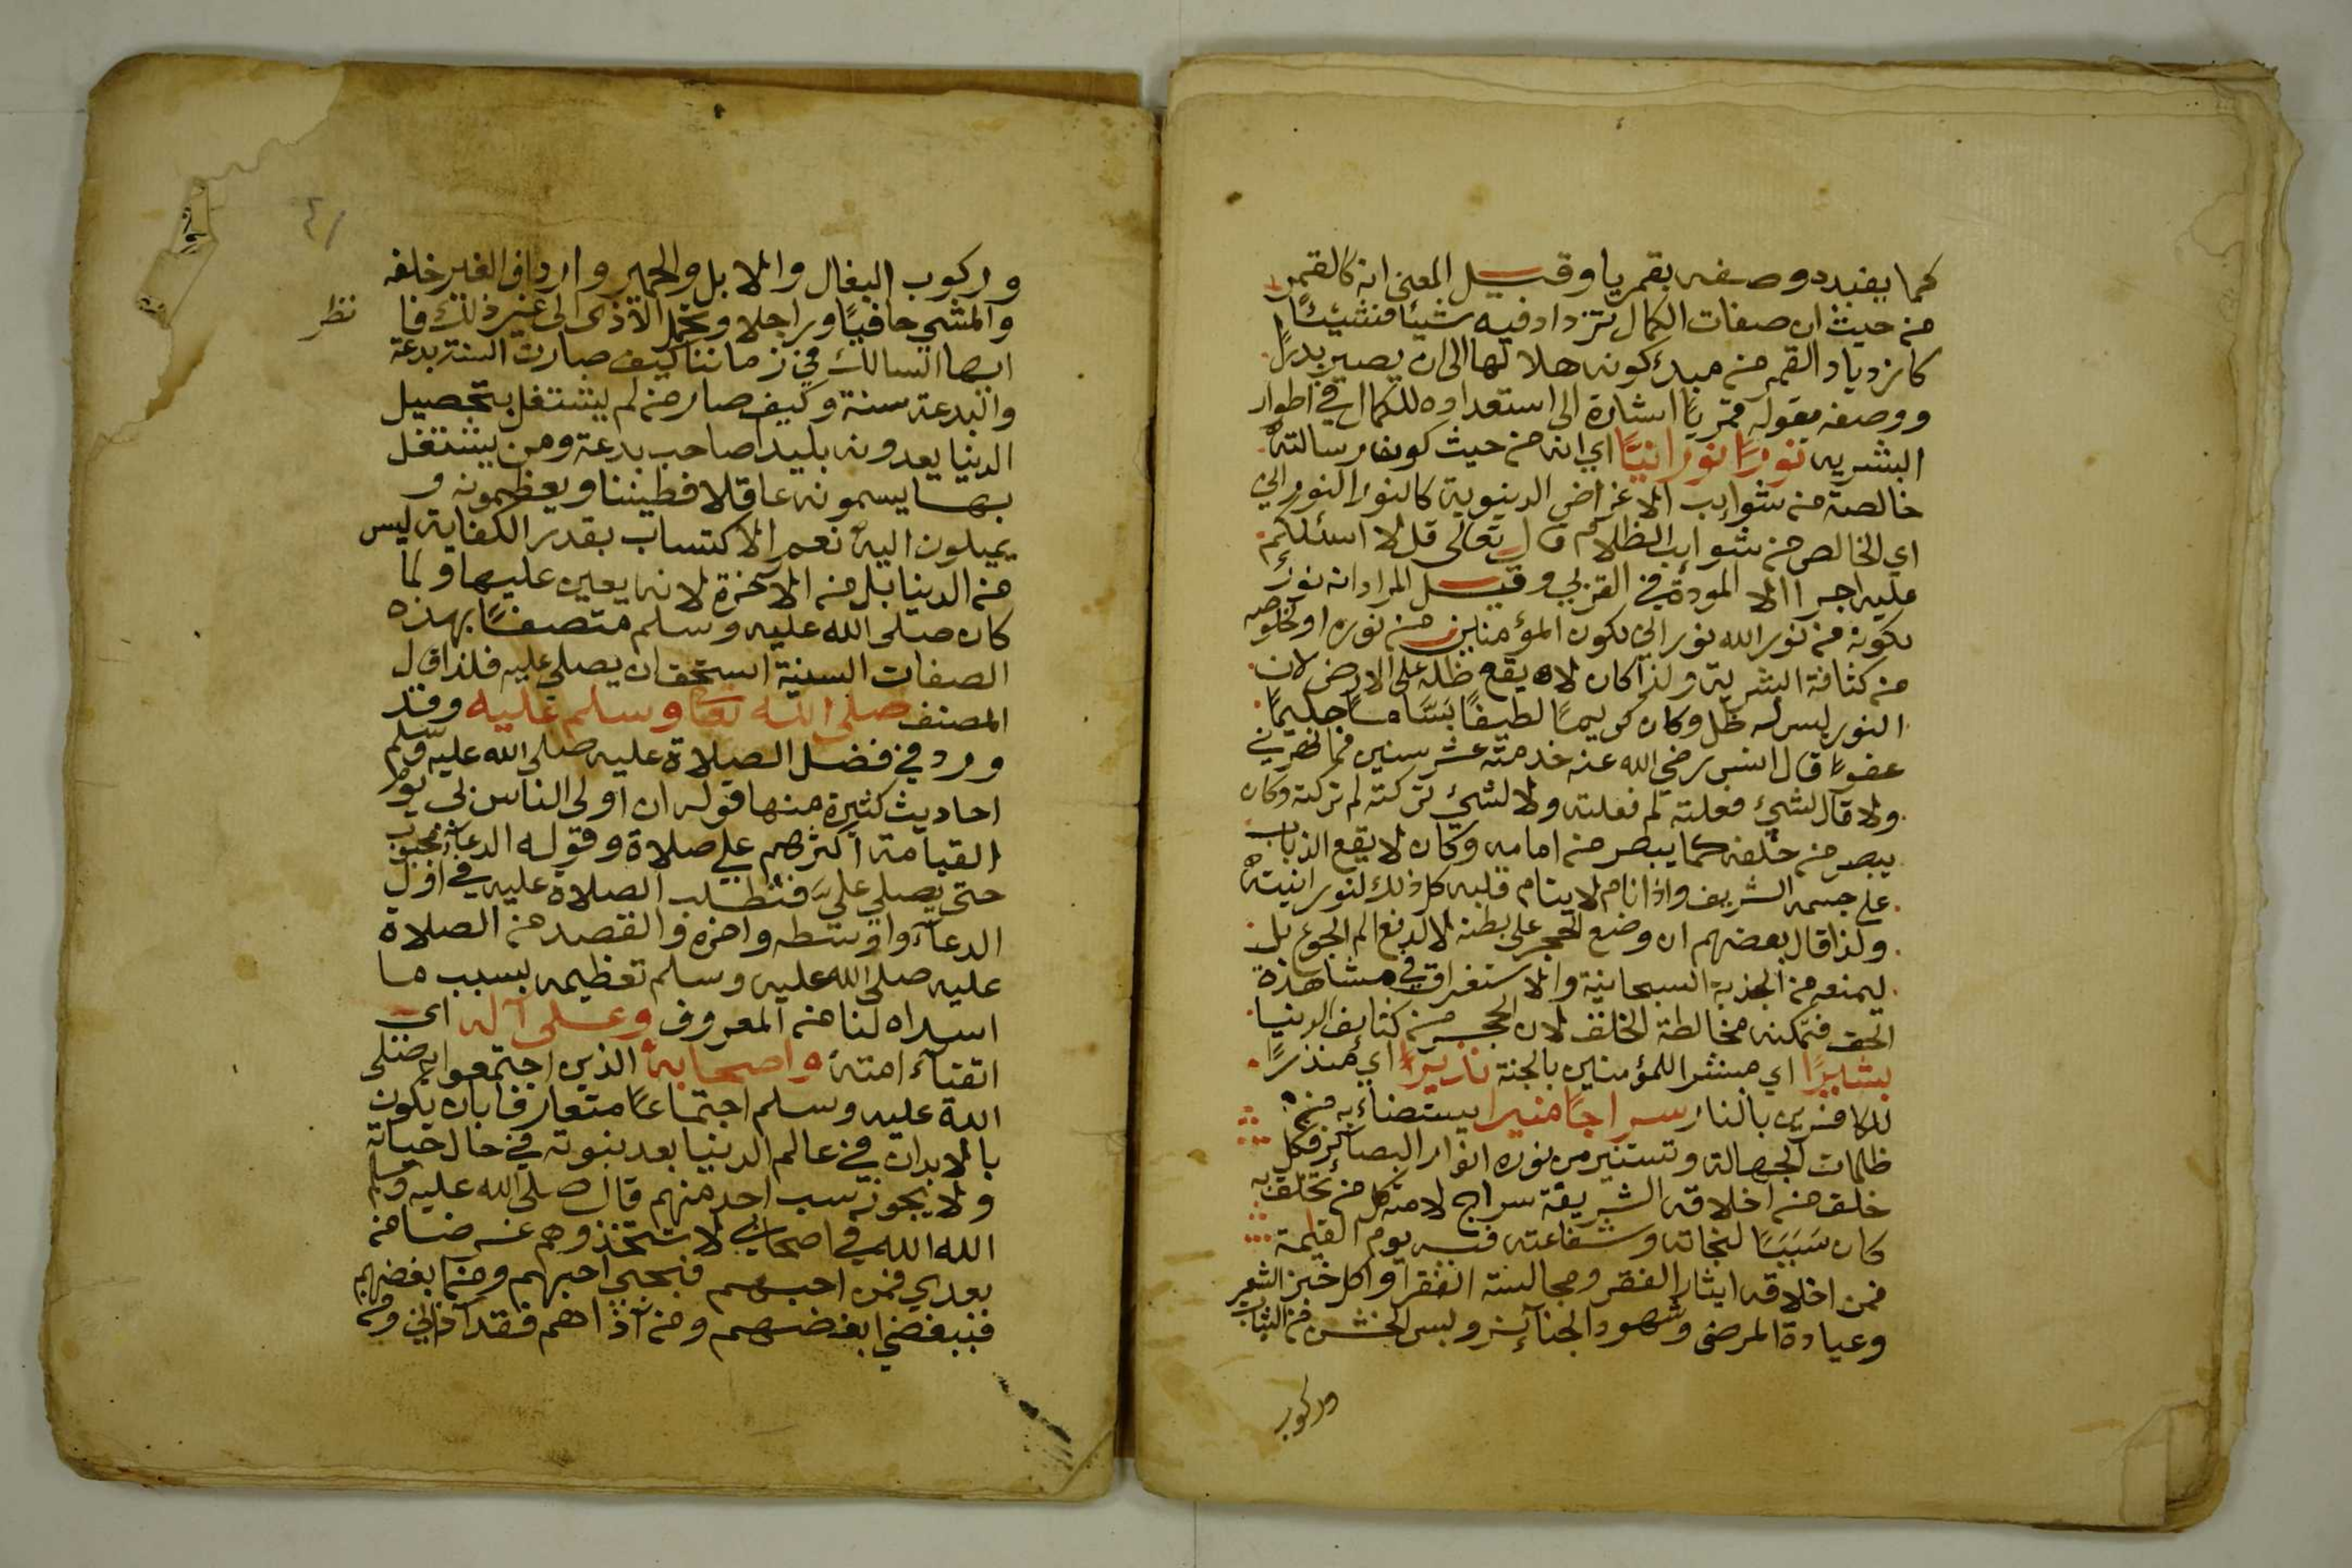 كما يفيده وصفه بقمريا وقيل المعنى انه كالقمر
من حيث ان صفات الكمال تزداد فيه شيئا فشيئا
كازدياد القمر من مبدء كونه هلالا الى ان يصير بدرا
ووصفه بقوله قمريا اشارة الى استعداده للكمال في اطوار
البشريه نورا نورانيا اي انه من حيث كون رسالته
خالصة من شوايب الاغراض الدينوية كالنور النوراني
اي الخالص من شوايب الظلام قال تعالى قل لا اسئلكم
عليه اجرا الا المودة في القربى وقيل المراد انه نور
بكونه من نور الله نوراني بكون المؤمنين من نوره او لخلوصه
من كثافة البشرية ولذا كان لا يقع ظله على الارض لان
النور ليس له ظل وكان كريما لطيفا بساما حليما
عفوا قال انس رضي الله عنه خدمته عشر سنين فما نهرني
ولا قال لشئ فعلته لم فعلته ولا لشئ تركته لم تركته وكان
يبصر من خلفه كما يبصر من امامه وكان لا يقع الذباب
على جسمه الشريف واذا نام لا ينام قلبه كل ذلك لنورانيته
ولذا قال بعضهم ان وضع الحجر على بطنه لا لدفع الم الجوع بل
ليمنعه من الجذبة السبحانية والاستغراق في مشاهدة
الحق فتمكنه مخالطة الخلق لان الحجر من كثايف الدنيا
بشيرا اي مبشرا للمؤمنين بالجنة نذيرا اي منذرا
للكافرين بالنار سراجا منيرا يستضاء به من
ظلمات الجهالة وتستنير من نوره انوار البصائر فكل
خلق من اخلاقه الشريفة سراج لامته كل من تخلق به
كان سببا لنجاته وشفاعته فيه يوم القيمة
فمن اخلاقه ايثار الفقر ومجالسة الفقرا واكل خبز الشعير
وعيادة المرضى وشهود الجنائز ولبس الخشن من الثياب
وركوب
٤١
وركوب البغال والابل والحمير وارداف الغير خلفه
والمشي حافيا وراجلا وتحمل الاذى الى غير ذلك فا
نظر
ايها السالك في زماننا كيف صارت السنة بدعة
والبدعة سنة وكيف صار من لم يشتغل بتحصيل
الدنيا يعدونه بليدا صاحب بدعة ومن يشتغل
بها يسمونه عاقلا فطينا ويعظمونه و
يميلون اليه نعم الاكتساب بقدر الكفاية ليس
من الدنيا بل من الآخرة لانه يعين عليها ولما
كان صلى الله عليه وسلم متصفا بهذه
الصفات السنية استحق ان يصلى عليه فلذا قال
المصنف صلى الله تعا وسلم عليه وقد
ورد في فضل الصلاة عليه صلى الله عليه وسلم
احاديث كثيرة منها قوله ان اولى الناس بي يوم
القيامة اكثرهم علي صلاة وقوله الدعاء محجوب
حتى يصلي علي فتطلب الصلاة عليه في اول
الدعاء واوسطه واخره والقصد من الصلاة
عليه صلى الله عليه وسلم تعظيمه بسبب ما
اسداه لنا من المعروف وعلى آله اي
اتقياء امته واصحابه الذين اجتمعوا به صلى
الله عليه وسلم اجتماعا متعارفا بان يكون
بالابدان في عالم الدنيا بعد نبوته في حال حياته
ولا يجوز سب احد منهم قال صلى الله عليه وسلم
الله الله في اصحابي لا تتخذوهم غرضا من
بعدي فمن احبهم فبحبي احبهم ومن ابغضهم
فببغضي ابغضهم ومن آذاهم فقد آذاني ومن